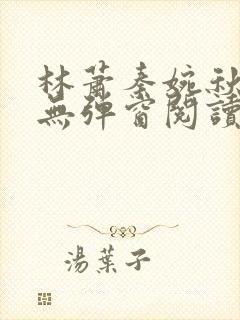 林蕭秦婉秋
無彈窗閱讀
湯葉子